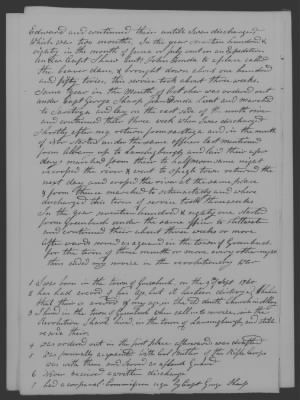 Edward and continued their untill I was discharged
which was two months. In the year seventeen hundred &
eighty in the month of June or july went on an Expedition
under Capt Shaw Lieut John Bonda to a place called
the beaver dams & brought down about one hundred
and fifty tories, this service took about three weeks.
Same year in the Month of October was ordered out
under Capt George Sharp John Bonda Lieut and marched
to Saratoga and lay on the east side of the north river
and continued their three week when I was discharged
Shortly after my return from saratoga and in the month
of Nov started under the same officers last mentioned
from albany up to and their after
days marched from there to halfmoon same night
crossed the river & went to Spiegh town and the
next day and crossed the river at the same place
& from thence marched to schenectady and where
discharged this tour of service took three weeks
In the year seventeen hundred & eighty one started
from greenbush under the same officers to Stillwater
and continued their about three weeks or more
afterwards served as a guard in the town of Greenbush
for the term of three months or more every other night
thus ended my service in the revolutionary War
1 I was born in the town of Greenbush on the 9th Sept 1760
2 has had record of his age but it has been destroyed, thinks
that there is a record of my age in the D dutch church in albany
3 I lived in the town of Greenbush when called into service, since the
Revolution I have lived in the town of Lansingburgh and still
reside there
4 was ordered out in the first place afterward was drafted
5 was personally acquainted with Col Butler of the Rifle Corps
was with them and served as a flank Guard
6 Never received a written discharge
7 had a corporal Commission sign by Capt George Sharp